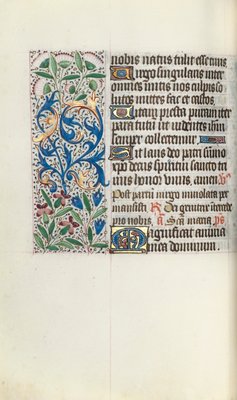 nobis natus tulit esse tuus.
Virgo singularis inter
omnes mitis nos culpis so
lutos mites fac et castos.
Vitam presta puram iter
para tutum ut videntes ihm
semper colletemur.
Sit laus deo patri summo
xpo decus spiritui sancto tri
nus honor unus. amen.
Post partum virgo inviolata per
mansisti. R Dei genitrix intercede
pro nobis. A Sca maria ps
Magnificat anima
mea dominum.